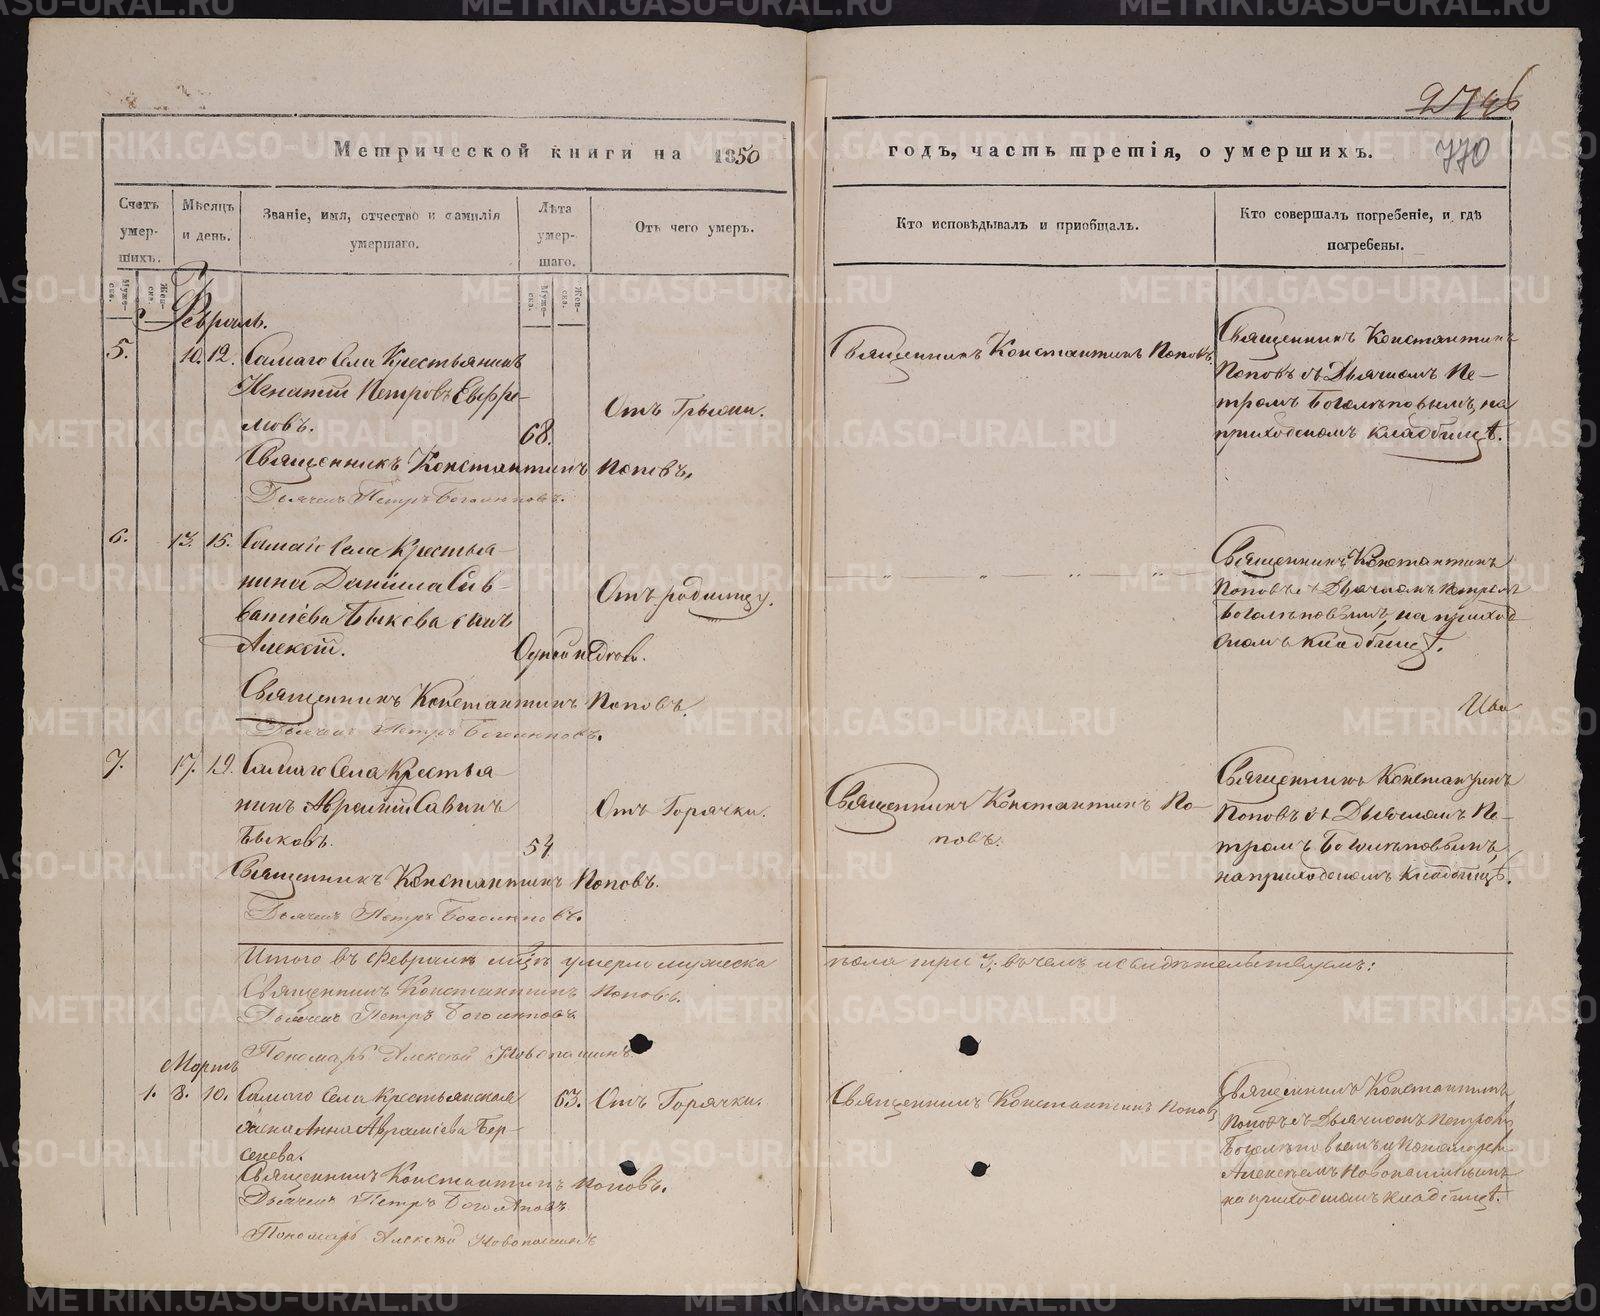 2746
770
Метрической книги на 1850
годъ, часть третія, о умершихъ.
Счетъ умер-шихъ.
Мѣсяцъ и день.
Званіе, имя, отчество и фамилія умершаго.
Лѣта умер-шаго.
Отъ чего умеръ.
Кто исповѣдывалъ и пріобщалъ.
Кто совершалъ погребеніе, и гдѣ погребены.
Муже-ска.
Жен-ска.
Муже-ска.
Жен-ска.
Февраль.
5. 10. 12. Самаго Села Крестьянинъ
Игнатій Петровъ Ефре-
мовъ. 68. Отъ Грыжи.
Священникъ Константинъ Поповъ.
Дьячекъ Петръ Боголѣповъ.
Священникъ Константинъ Поповъ
Священникъ Константинъ
Поповъ съ Дьячкомъ Пе-
тромъ Боголѣповымъ, на
приходскомъ кладбищѣ.
6. 13. 15. Самаго Села Крестья-
нина Даніила
Быкова сынъ
Алексій. Одной недѣли. Отъ родимцу.
Священникъ Константинъ Поповъ.
Дьячекъ Петръ Боголѣповъ.
Священникъ Константинъ
Поповъ съ Дьячкомъ Петромъ
Боголѣповымъ, на приход-
скомъ кладбищѣ.
7. 17. 19. Самаго Села Крестья
нинъ Аврамій Савинъ
Быковъ. 54. Отъ Горячки.
Священникъ Константинъ Поповъ.
Дьячекъ Петръ Боголѣповъ.
Священникъ Константинъ По-
повъ.
Священникъ Константинъ
Поповъ съ Дьячкомъ Пе-
тромъ Боголѣповымъ,
на приходскомъ кладбищѣ.
Итого въ Февралѣ мцѣ умерло мужеска
пола три 3, въ чемъ и свидѣтельствуемъ:
Священникъ Константинъ Поповъ.
Дьячекъ Петръ Боголѣповъ
Пономарь Алексѣй Новопашинъ
Мартъ
1. 8. 10. Самаго Села Крестьянская 63. Отъ Горячки.
жена Анна Авраміева Бер-
сенева.
Священникъ Константинъ Поповъ.
Дьячекъ Петръ Боголѣповъ
Пономарь Алексѣй Новопашинъ
Священникъ Константинъ Поповъ
Священникъ Константинъ
Поповъ съ Дьячкомъ Петромъ
Боголѣповымъ и Пономаремъ
Алексѣемъ Новопашинымъ
на приходскомъ кладбищѣ.
METRIKI.GASO-URAL.RU